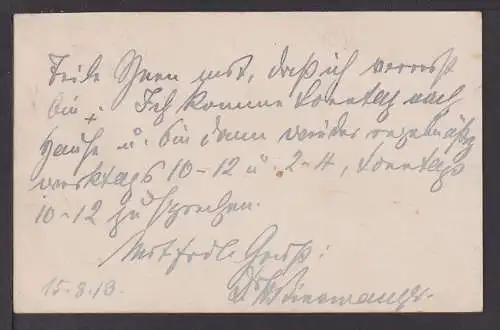 Teile Ihnen mit, daß ich verreist
bin. Ich komme Sonntag nach
Hause u. bin dann wieder regelmäßig
werktags 10-12 u. 2-4, Sonntags
10-12 zu sprechen.
Mit frdl. Gruß:
15-8.13.